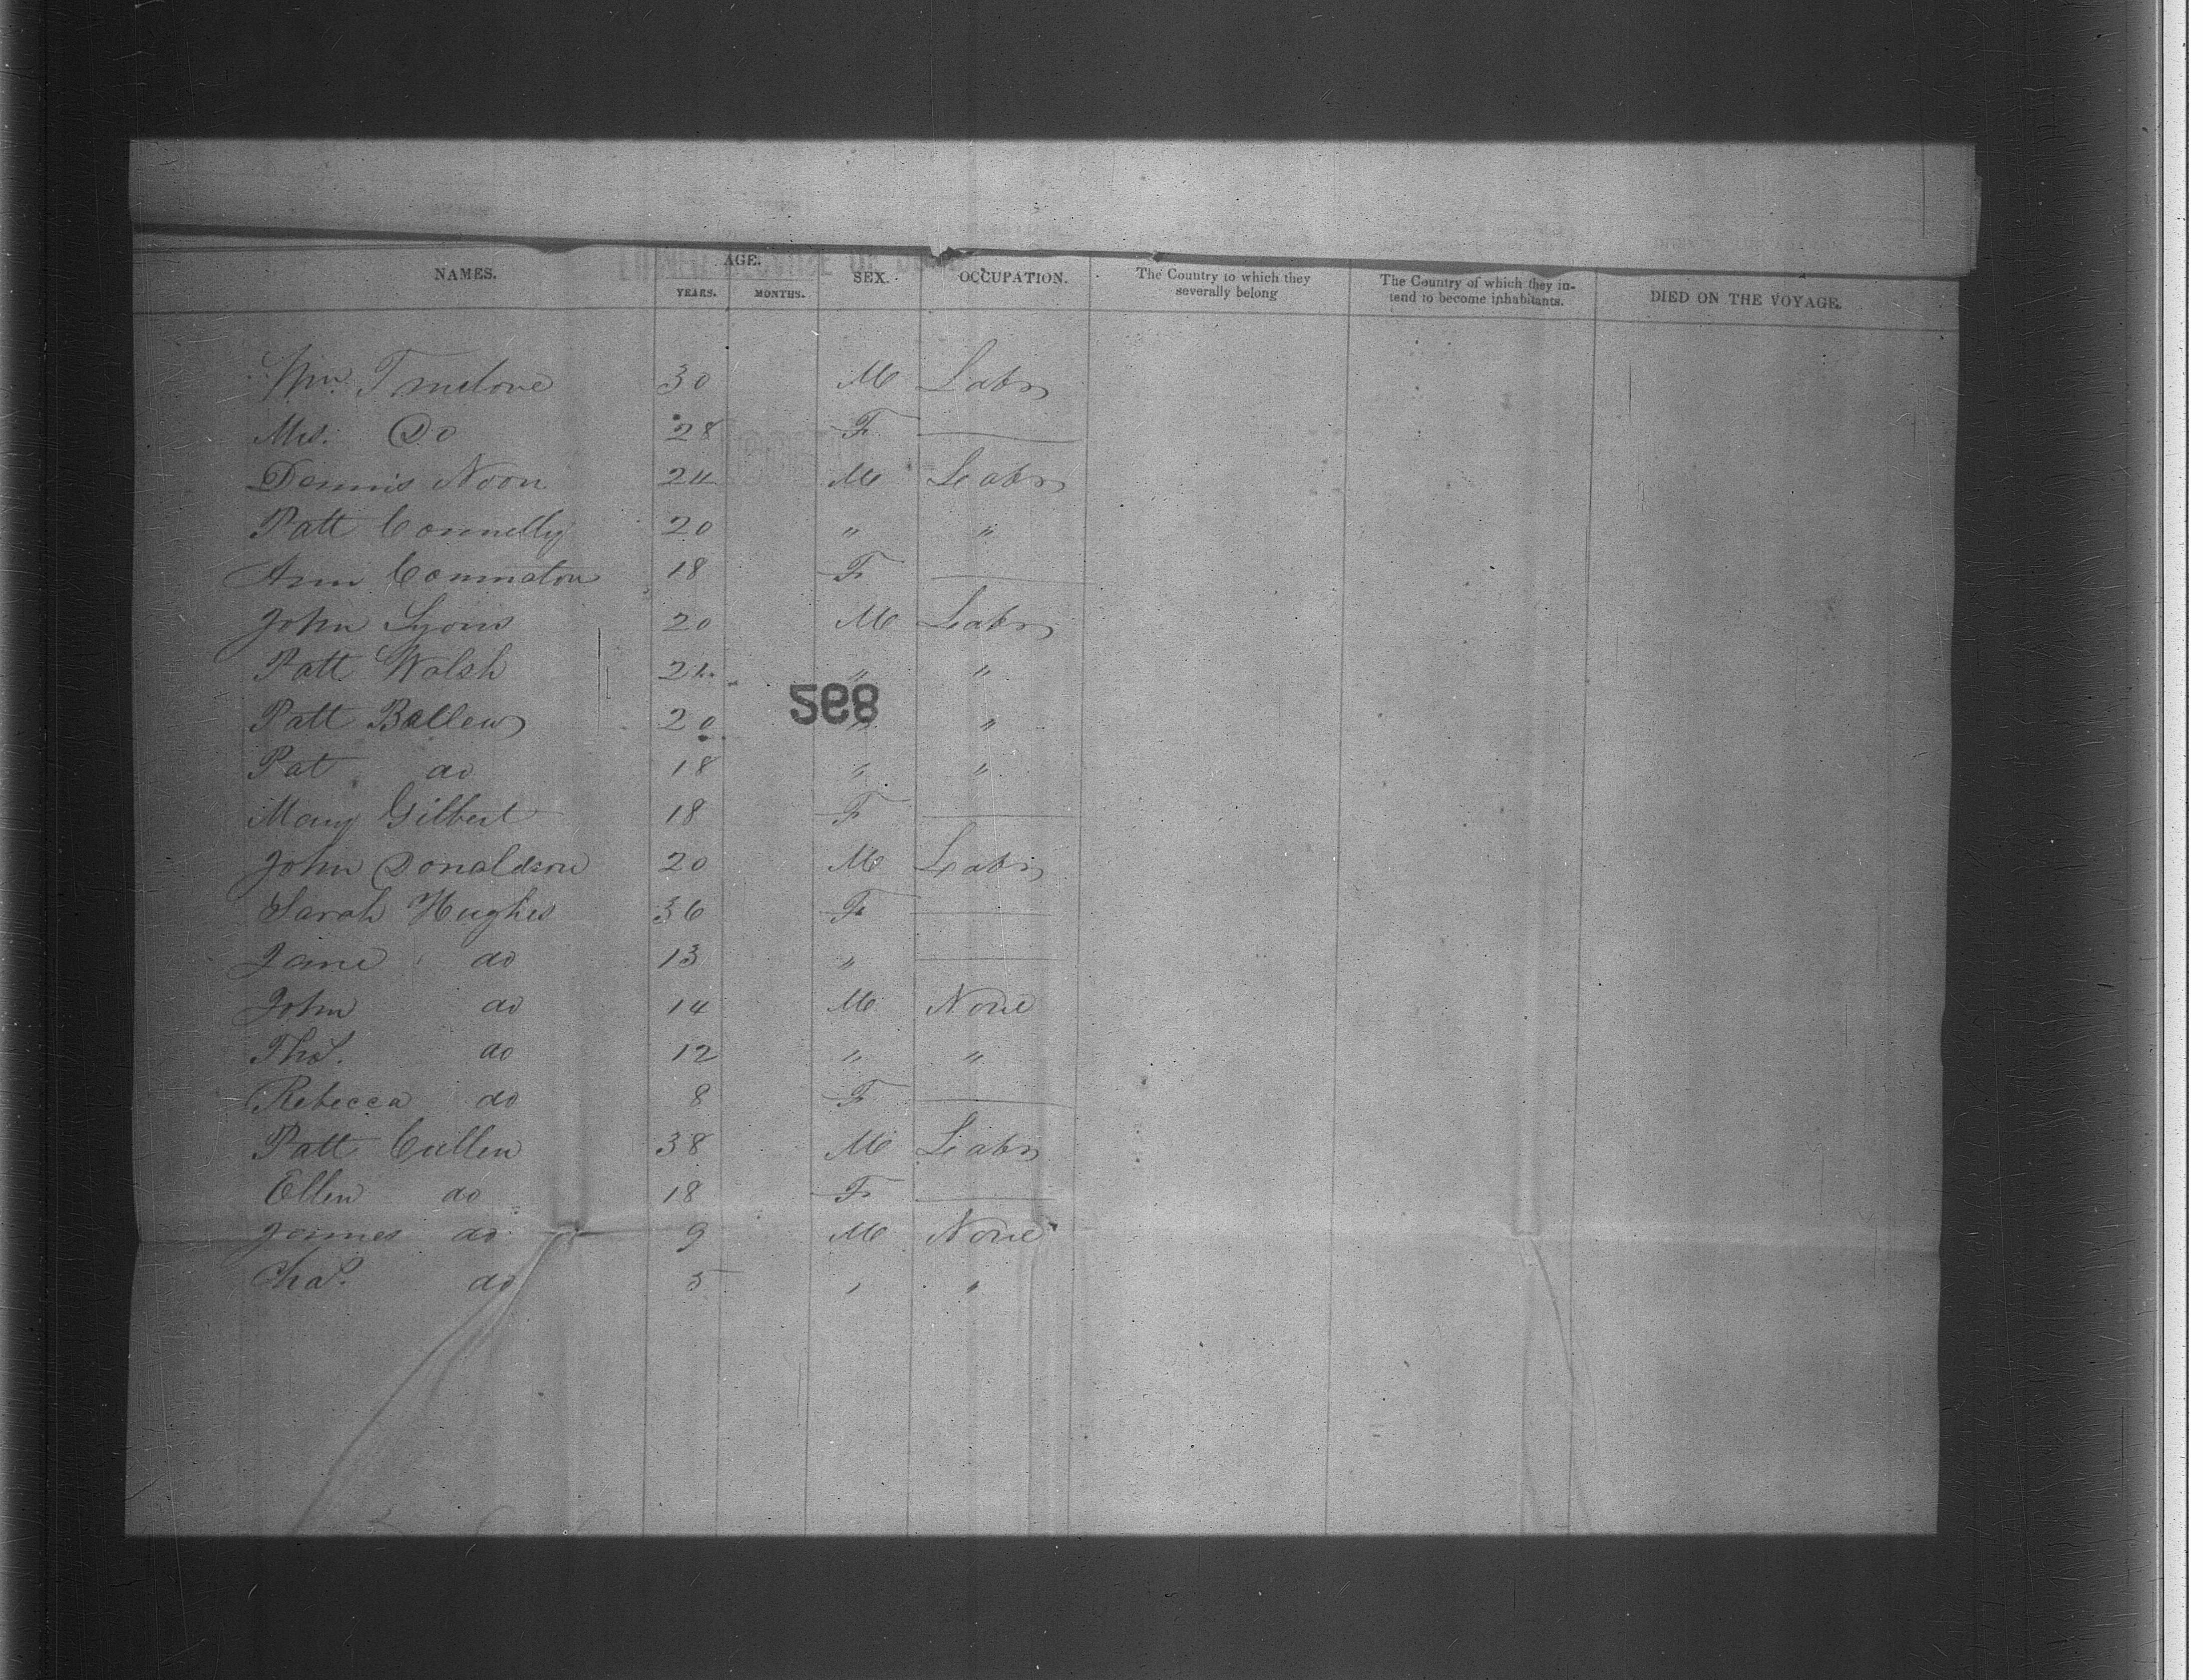 NAMES. AGE. YEARS. MONTHS. SEX. OCCUPATION. The Country to which they severally belong The Country of which they intend to become inhabitants. DIED ON THE VOYAGE.
Wm. Truelove 30 M Labr
Mrs. Do 28 F
Dennis Noon 24 M Labr
Patt Connelly 20 " "
Ann 18 F
John Lyons 20 M Labr
Patt Walsh 24 " "
298
Patt Bellew 20 " "
Pat do 18 " "
Mary Gilbert 18 F
John Donaldson 20 M Labr
Sarah Hughes 36 F
Jane do 13 "
John do 14 M None
Thos. do 12 " "
Rebecca do 8 F
Patt Cullen 38 M Labr
Ellen do 18 F
James do 9 M None
Chas. do 5 " "